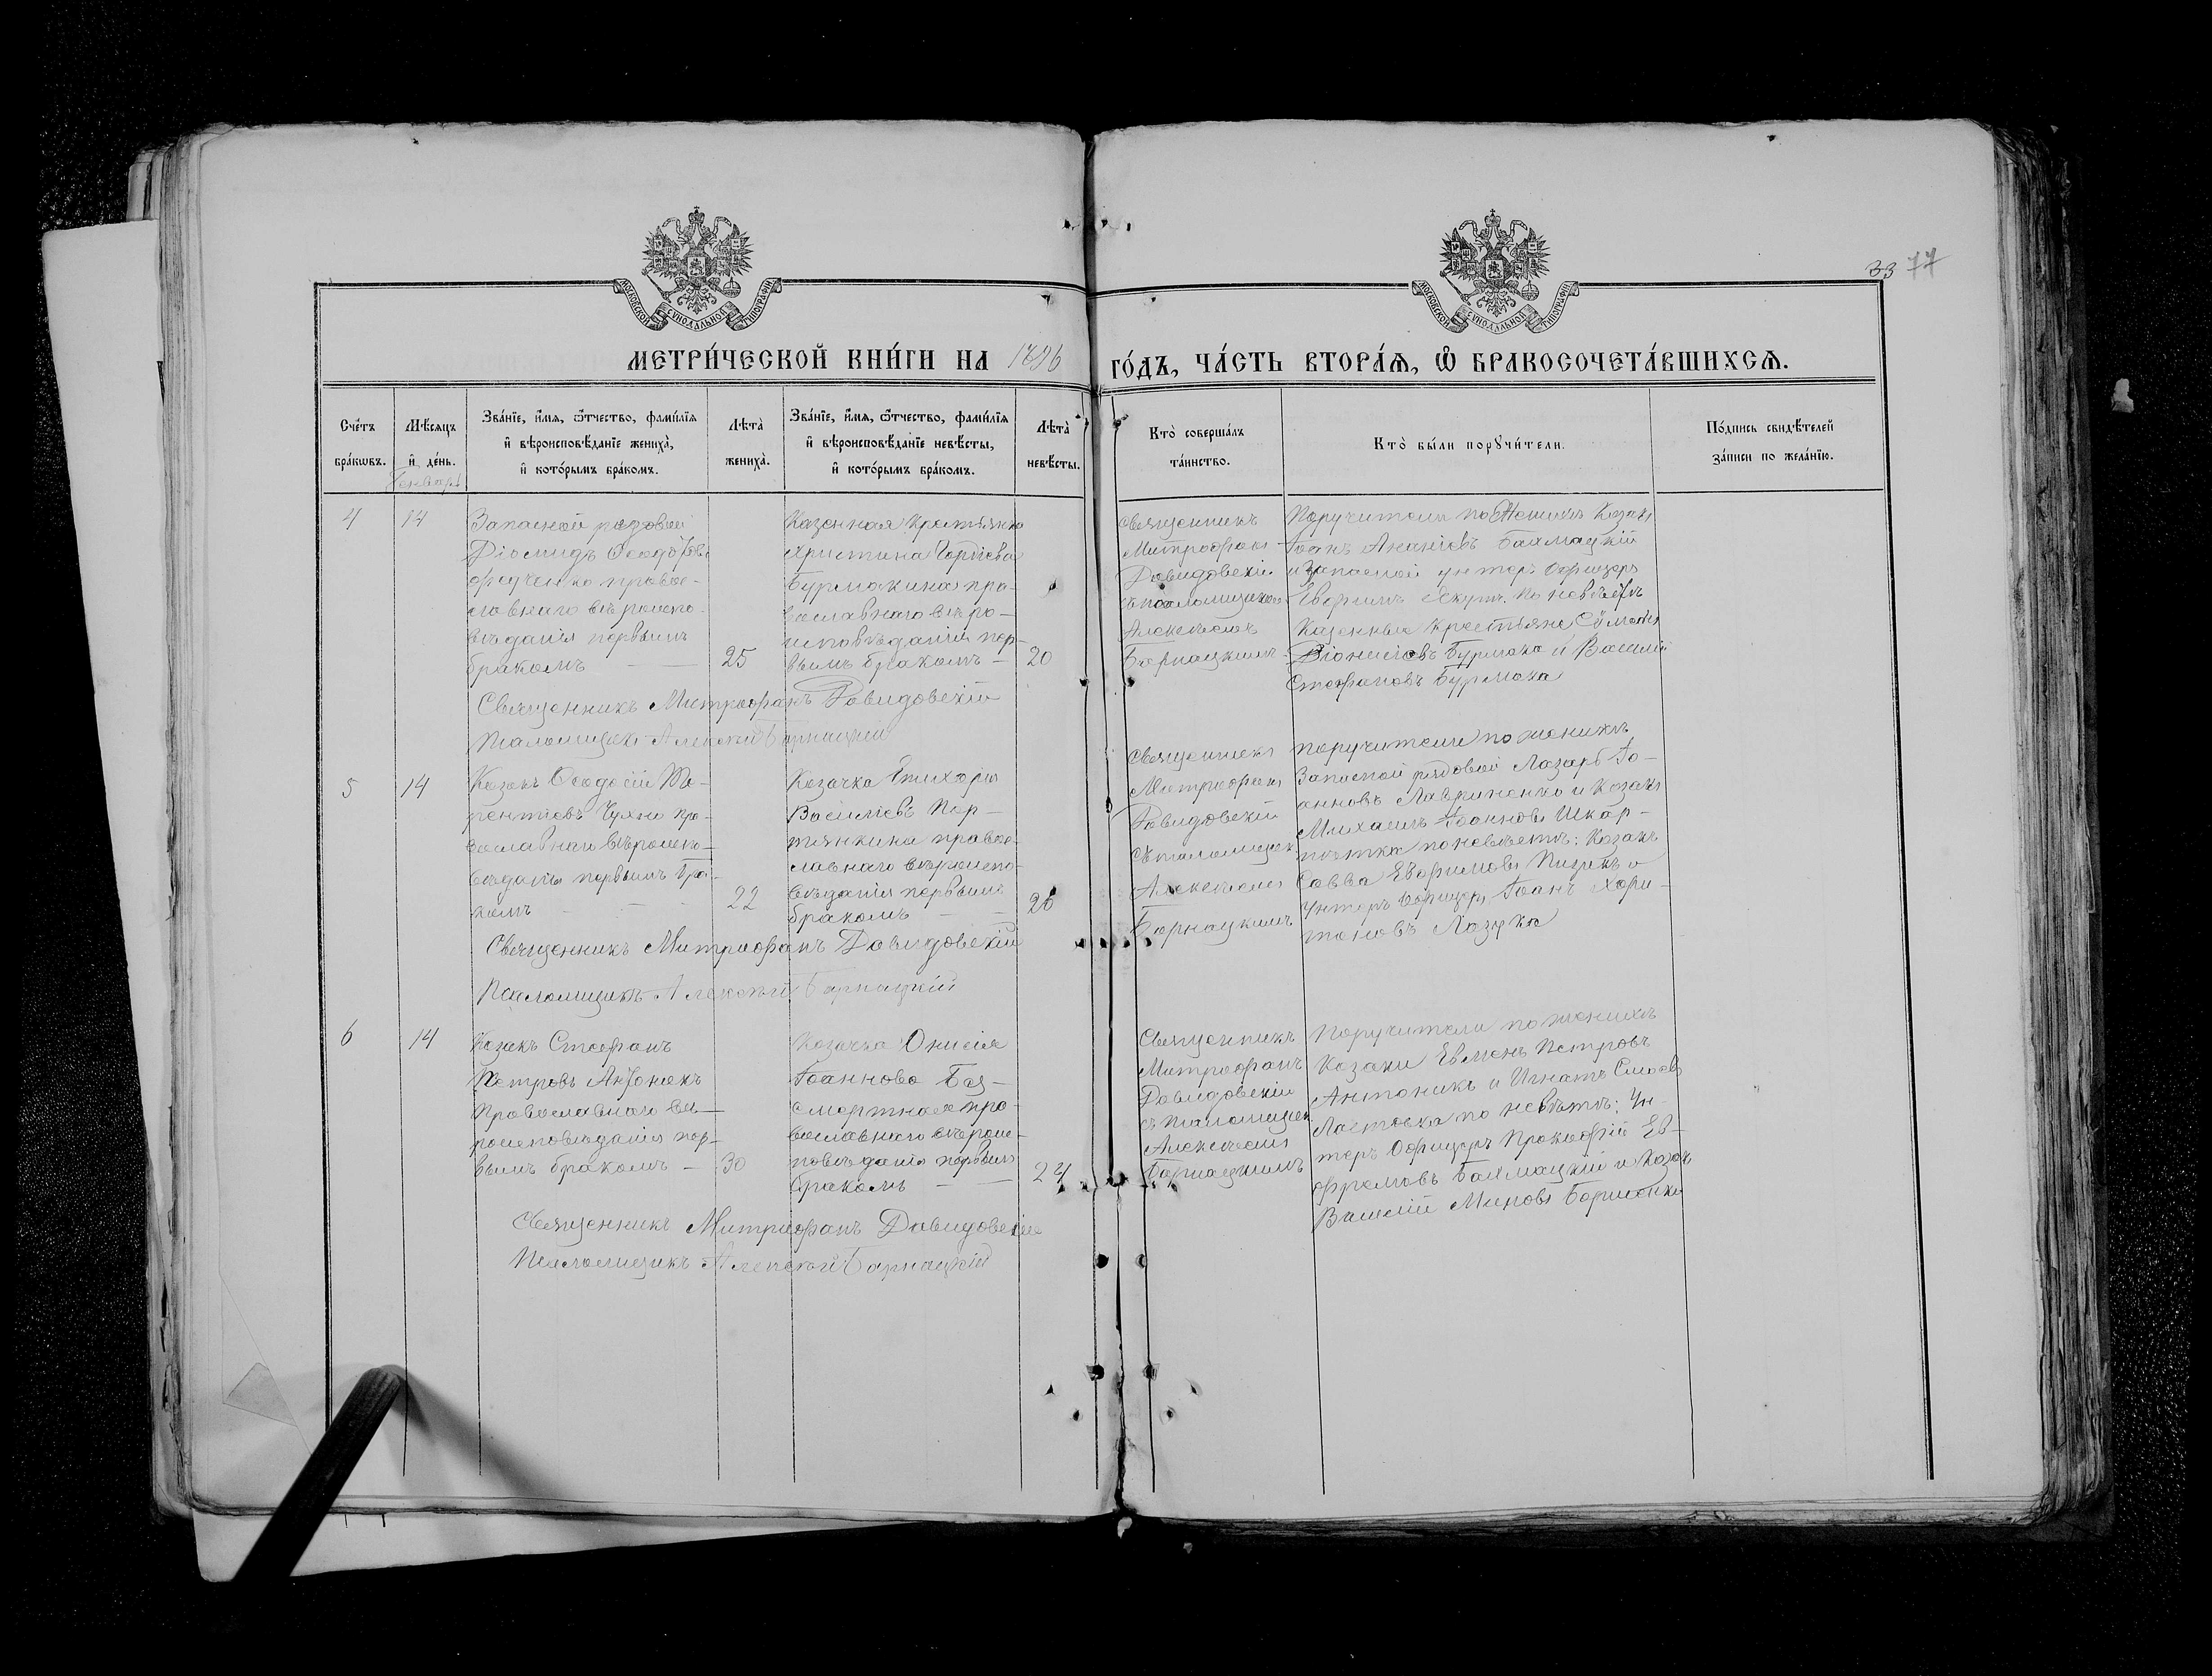 33 77
МОСКОВСКОЙ СѴНОДАЛЬНОЙ ТИПОГРАФІИ
МОСКОВСКОЙ СѴНОДАЛЬНОЙ ТИПОГРАФІИ
МЕТРИ́ЧЕСКОЙ КНИ́ГИ НА 1896 ГО́ДЪ, ЧА́СТЬ ВТОРА́Я, Ѽ БРАКОСОЧЕТА́ВШИХСЯ.
Сче́тъ
бра́кѡвъ.
Мѣ́сяцъ
и҆ де́нь.
Январь
Зва́нїе, и҆́мя, ѻ҆́тчество, фами́лїя
и҆ вѣроисповѣ́данїе жениха̀,
и҆ кото́рымъ бра́комъ.
Лѣ́та
жениха̀.
Зва́нїе, и҆́мя, ѻ҆́тчество, фами́лїя
и҆ вѣроисповѣ́данїе невѣ́сты,
и҆ кото́рымъ бра́комъ.
Лѣ́та
невѣ́сты.
Кто̀ соверша́лъ
та́инство.
Кто̀ бы́ли порꙋчи́тели.
По́дпись свидѣ́телей
за́писи по жела́нїю.
4
14
Запасной рядовой
Діомидъ Ѳеодоровъ
право-
славнаго вѣроиспо-
вѣданія первымъ
бракомъ —
25
Казенная крестьянка
Христина Гордіева
Бурмакина пра-
вославнаго вѣро-
исповѣданія пер-
вымъ бракомъ —
20
Священникъ
Митрофанъ
Давидовскій
съ псаломщикомъ
Алексѣемъ
Барнацкимъ
Поручители по женихѣ Козакъ
Іоанъ Ананіевъ Бахмацкій
и Запасной унтеръ Офицеръ
Евфимъ по невѣстѣ
Казенные крестьяне Сѵмеонъ
Діонисіевъ Бурмака и Василій
Стефановъ Бурмака
Священникъ Митрофанъ Давидовскій
Псаломщикъ Алексѣй Барнацкій
5
14
Козакъ Ѳеодосій Те-
рентіевъ Чухно пра-
вославнаго вѣроиспо-
вѣданія первымъ бра-
комъ — — —
22
Козачка Епихарія
Василіевъ Пор-
тянкина право-
славнаго вѣроиспо-
вѣданія первымъ
бракомъ — —
26
Священникъ
Митрофанъ
Давидовскій
съ псаломщик.
Алексѣемъ
Барнацкимъ
Поручители по женихѣ
Запасной рядовой Лазарь Іо-
анновъ Лавриненко и Козакъ
Михаилъ Іоанновъ Шкар-
по невѣстѣ: Козакъ
Савва Евфимовъ и
Унтеръ Офицеръ Іоанъ Хари-
тоновъ Лазука
Священникъ Митрофанъ Давидовскій
Псаломщикъ Алексѣй Барнацкій
6
14
Козакъ Стефанъ
Петровъ Антоникъ
Православнаго вѣ-
роисповѣданія пер-
вымъ бракомъ —
30
Козачка Онисія
Іоаннова Без-
смертная пра-
вославнаго вѣроис-
повѣданія первымъ
бракомъ — —
24
Священникъ
Митрофанъ
Давидовскій
съ псаломщик
Алексѣемъ
Барнацкимъ
Поручители по женихѣ
Козаки Евменъ Петровъ
Антоникъ и Игнатъ
Ластовка по невѣстѣ: Ун-
теръ Офицеръ Прокофій Ев-
фремовъ Бахмацкій и Козакъ
Василій Мироновъ
Священникъ Митрофанъ Давидовскій
Псаломщикъ Алексѣй Барнацкій